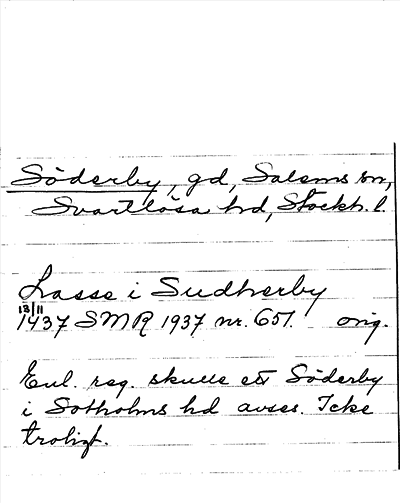 Söderby, gd, Salems sn,
Svartlösa hd, Stockh. l.
Lasse i Sudherby
13/11
1437 SMR 1937 nr. 651. orig.
Enl. reg. skulle ett Söderby
i Sotholms hd avses. Icke
troligt.